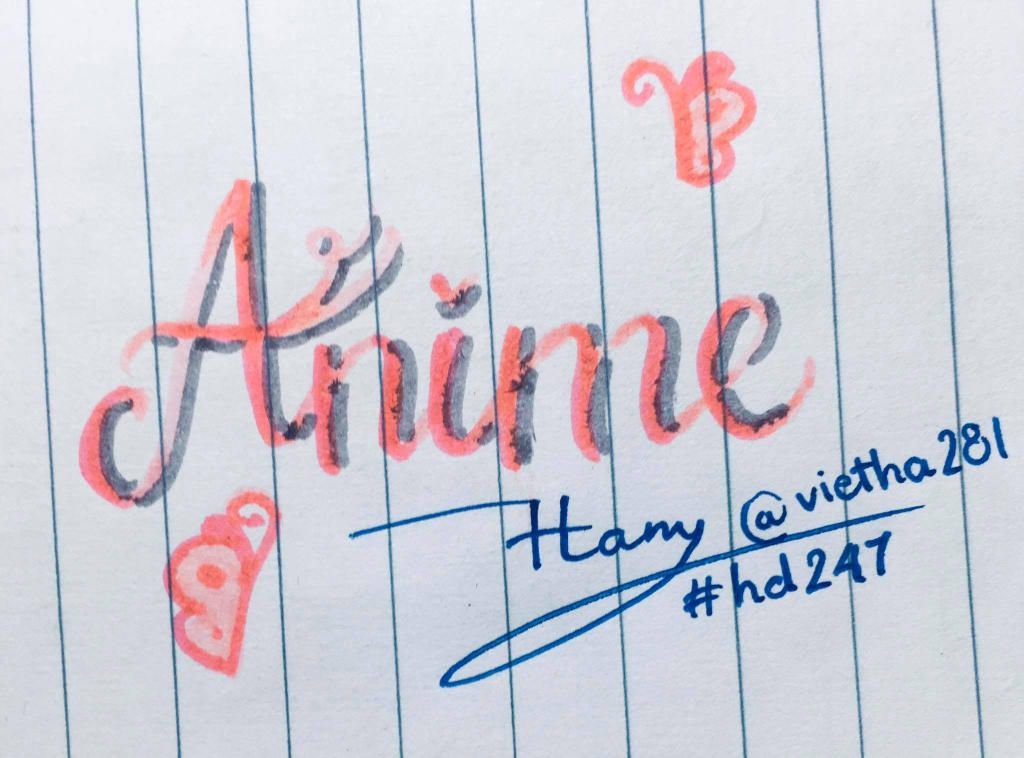 Anime
Hany @vietha281
#hd247